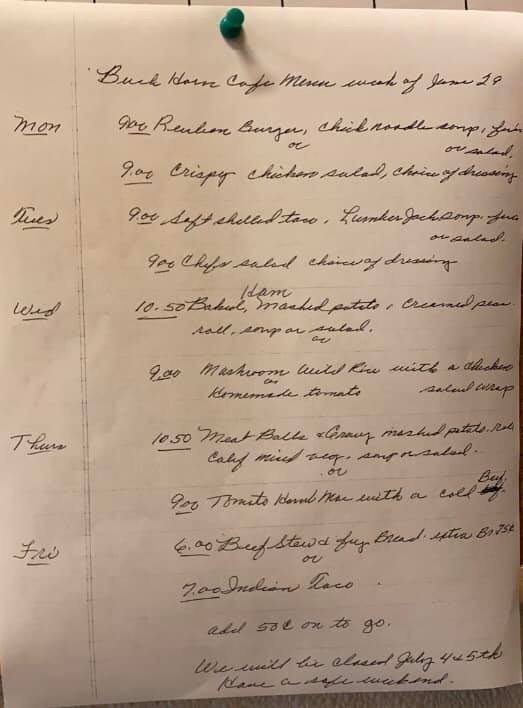 Buck Horn Cafe Menu week of June 29
Mon 9.00 Reuben Burger, chick noodle soup, fries
or or salad.
9.00 Crispy chicken salad, choice of dressing
Tues 9.00 Soft shelled taco, Lumber Jack soup. fries
or salad.
9.00 Chefs salad choice of dressing
Ham
Wed 10.50 Baked, Mashed potato, creamed peas
roll, soup or salad.
or
9.00 Mushroom Wild Rice with a chicken
or
Homemade tomato salad wrap
Thurs 10.50 Meat Balls & Gravy mashed potato. roll
Calif mixed veg. soup or salad.
or
9.00 Tomato Hamb Mac with a cold Beef.
Fri 6.00 Beef Stew & fry Bread. extra Br 75¢
or
7.00 Indian Taco
add 50¢ on to go.
We will be closed July 4 & 5th
Have a safe weekend.